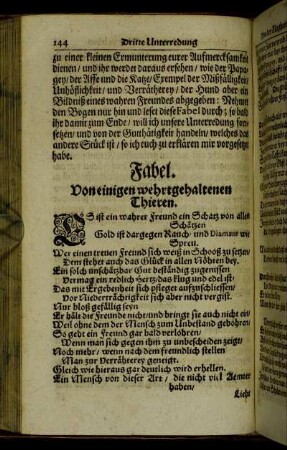 144 Dritte Unterredung
zu einer kleinen Ermunterung eurer Aufmercksamkeit
dienen/ und ihr werdet daraus ersehen/ wie der Papa-
gey/ der Affe und die Katze/ Exempel der Mißfälligkeit/
Unhöflichkeit/ und Verrätherey/ der Hund aber ein
Bildniß eines wahren Freundes abgegeben: Nehmt
den Bogen nur hin und leset diese Fabel durch; so bald
ihr damit zum Ende/ will ich unsere Unterredung fort-
setzen/ und von der Gutthätigkeit handeln/ welches das
andere Stück ist/ so ich euch zu erklären mir vorgesetzt
habe.
Fabel.
Von einigen wehrtgehaltenen
Thieren.
ES ist ein wahrer Freund ein Schatz von allen
Schätzen
Gold ist dargegen Rauch- und Diamant wie
Spreu.
Wer einen treuen Freund sich weiß in Schooß zu setzen/
Dem stehet auch das Glück in allen Nöhten bey.
Ein solch unschätzbar Gut beständig zugeniessen
Vermag ein redlich Hertz/ das klug und edel ist/
Das mit Ergebenheit sich pfleget aufzuschliessen/
Vor Niederträchtigkeit sich aber nicht vergist.
Nur bloß gefällig seyn
Er hält die Freunde nicht/ und bringt sie auch nicht ein/
Weil ohne dem der Mensch zum Unbestand gebohren/
So geht ein Freund gar bald verlohren/
Wenn man sich gegen ihm zu unbescheiden zeigt/
Noch mehr/ wenn nach dem freundlich stellen
Man zur Verrähterey geneigt.
Gleich wie hieraus gar deutlich wird erhellen.
Ein Mensch von dieser Art/ die nicht viel Aemter
haben/
Liebt